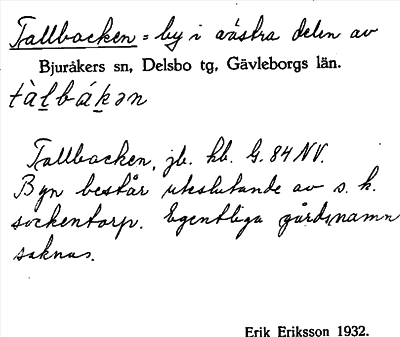 Tallbacken = by i västra delen av
Bjuråkers sn, Delsbo tg, Gävleborgs län.
tàl̠bák̠ən
Tallbacken, jb. hb. G. 84 NV.
Byn består uteslutande av s. k.
sockentorp. Egentliga gårdsnamn
saknas.
Erik Eriksson 1932.